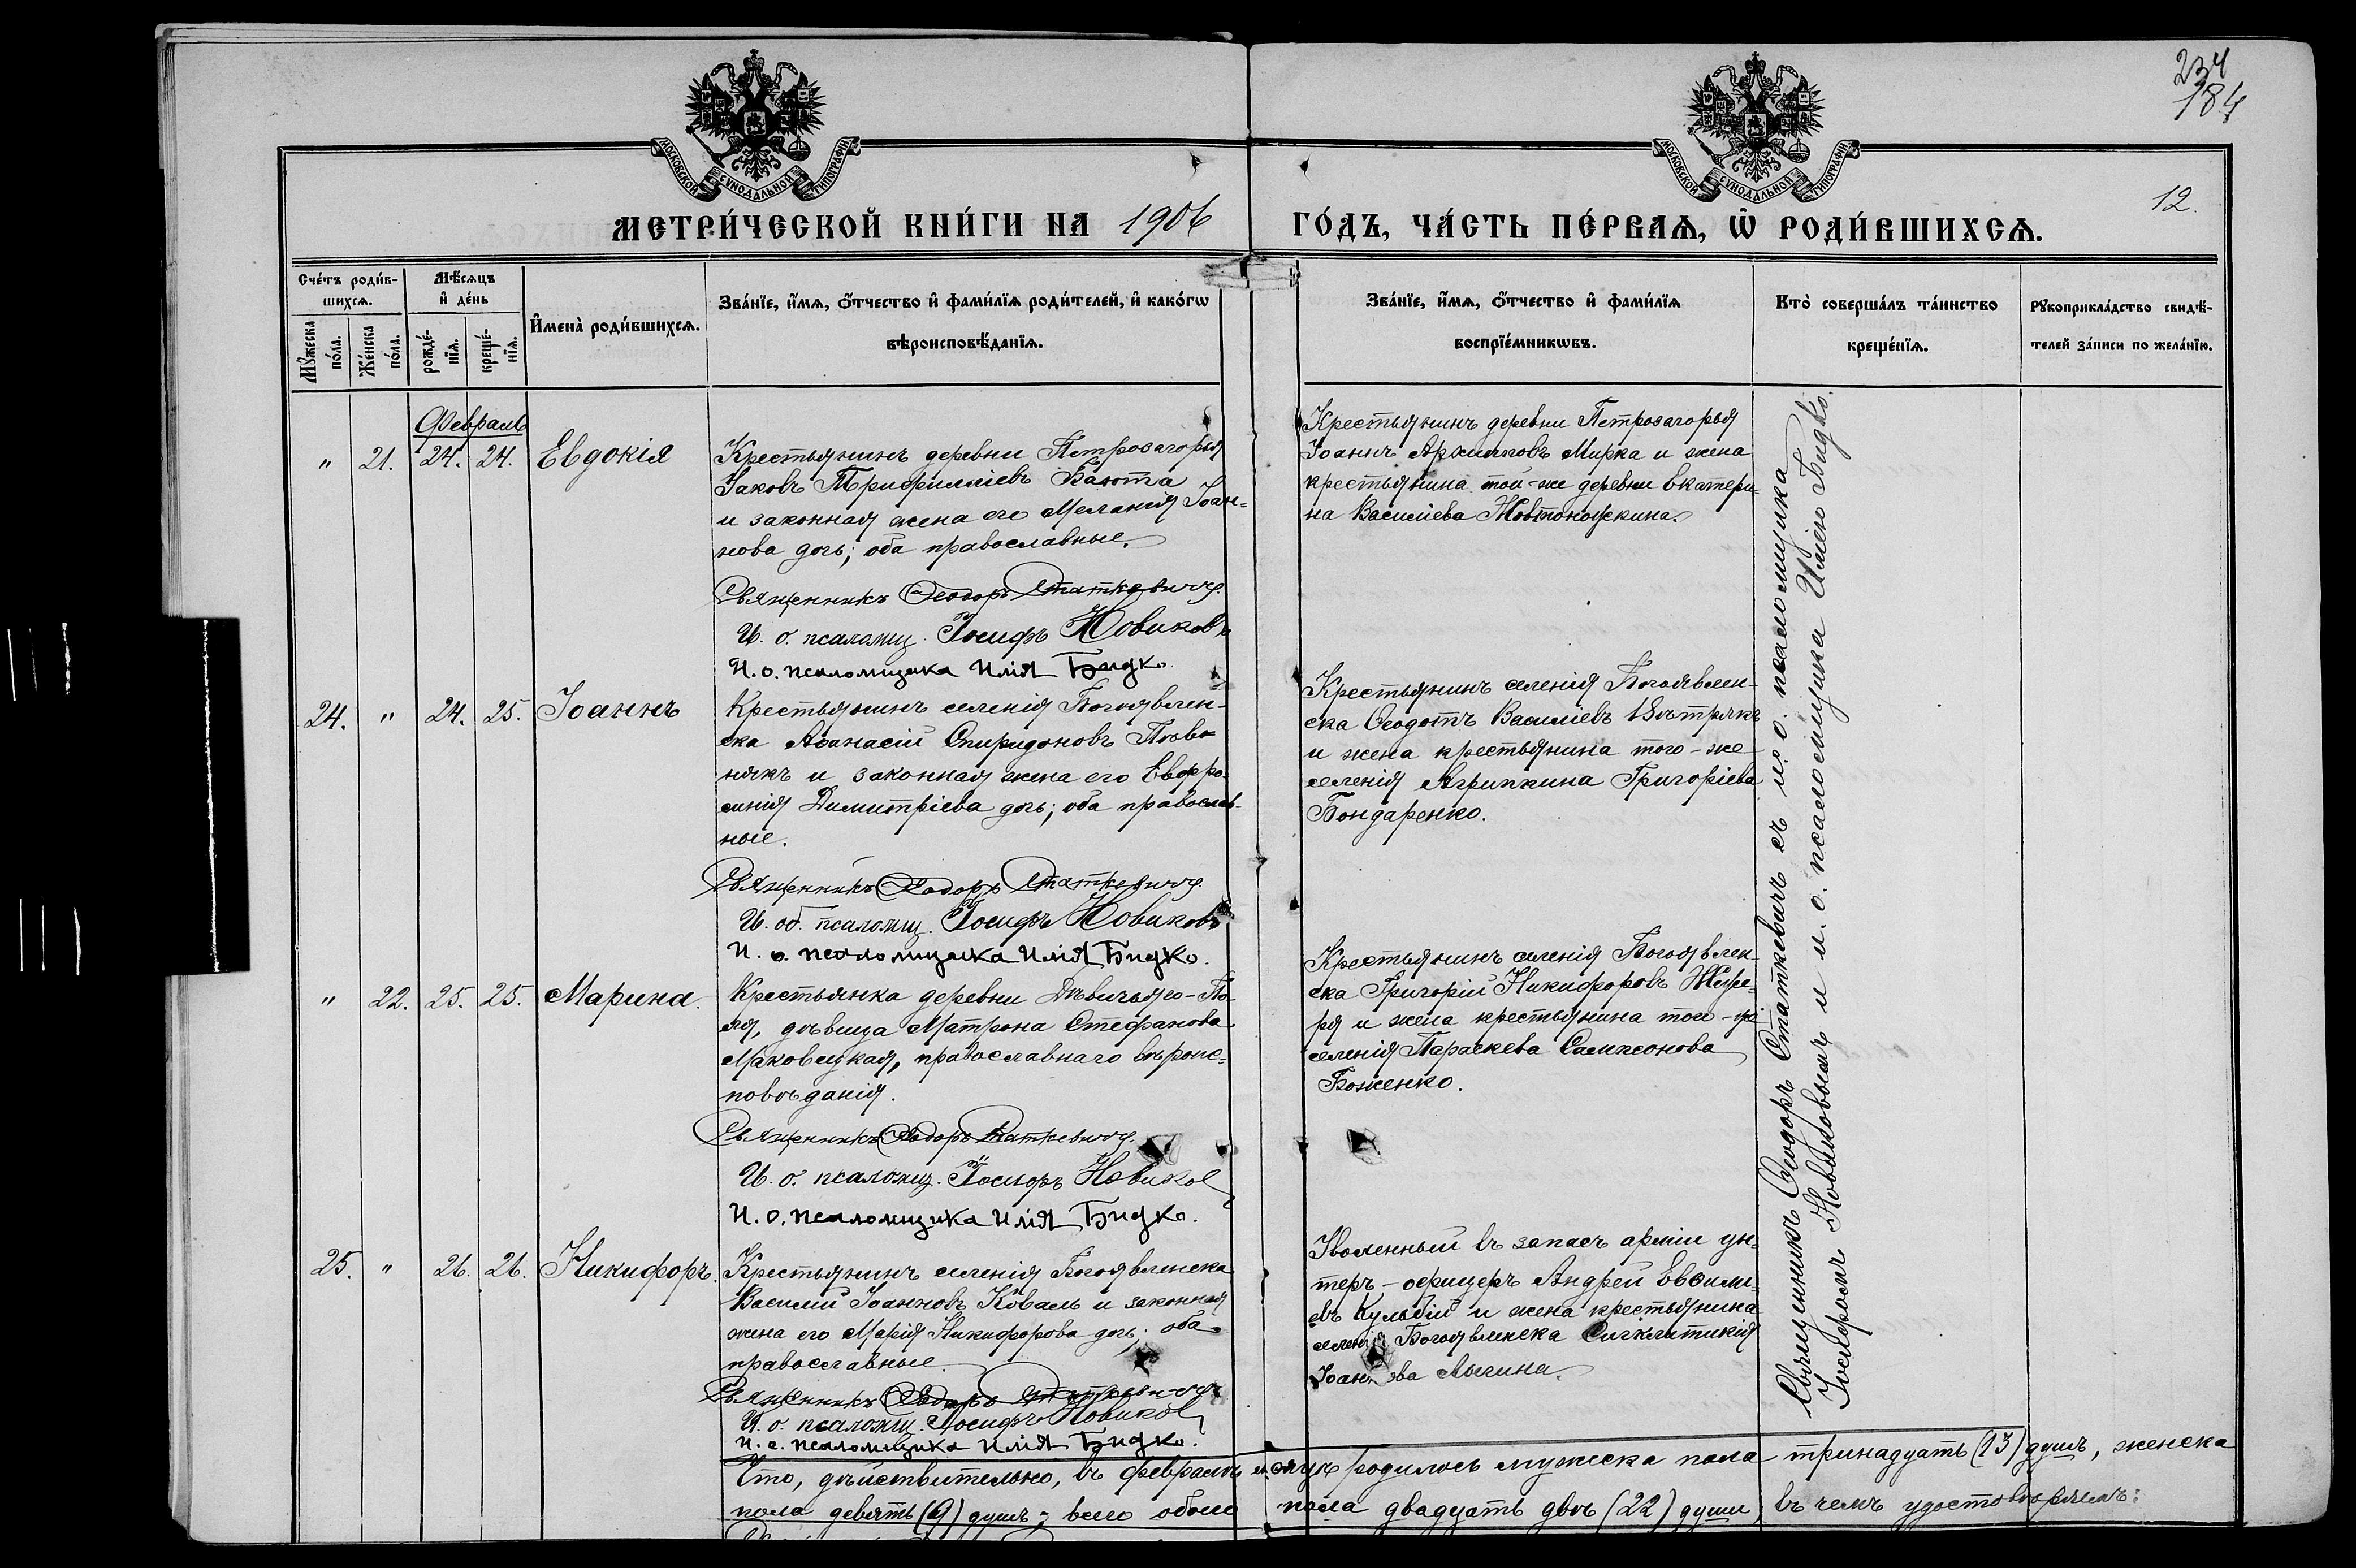 234
184
12.
МОСКОВСКОЙ СѴНОДАЛЬНОЙ ТИПОГРАФІИ
МОСКОВСКОЙ СѴНОДАЛЬНОЙ ТИПОГРАФІИ
МЕТРИ́ЧЕСКОЙ КНИ́ГИ НА 1906 ГО́ДЪ, ЧА́СТЬ ПЕ́РВАѦ, Ѽ РОДИ́ВШИХСѦ.
Сче́тъ роди́в-
шихсѧ.
Мꙋ́жеска по́ла.
Же́нска по́ла.
Мѣ́сѧцъ
и҆ де́нь
рожде́-нїѧ.
креще́-нїѧ.
И҆мена̀ роди́вшихсѧ.
Зва́нїе, и҆́мѧ, ѻ҆́тчество и҆ фами́лїѧ роди́телей, и҆ како́гѡ
вѣроисповѣ́данїѧ.
Зва́нїе, и҆́мѧ, ѻ҆́тчество и҆ фами́лїѧ
воспрїе́мникѡвъ.
Кто̀ соверша́лъ та́инство
креще́нїѧ.
Рꙋкоприкла́дство свидѣ́-
телей за́писи по жела́нїю.
Февраль
" 21. 24. 24. Евдокія
Крестьянинъ деревни Петрозагорья
Іаковъ Трифилліевъ Баюта
и законная жена его Меланія Іоан=
нова дочь; оба православные.
Священникъ Ѳеодоръ Статкевичъ.
И. о. псаломщ. Іосифъ Новиковъ
И. о. псаломщика Илія Бидко.
Крестьянинъ деревни Петрозагорья
Іоаннъ Мирка и жена
крестьянина той-же деревни Екатери-
на Василіева
24. " 24. 25. Іоаннъ
Крестьянинъ селенія Богоявлен-
ска Аѳанасій Спиридоновъ
някъ и законная жена его Евфро-
синія Димитріева дочь; оба православ-
ные.
Священникъ Ѳеодоръ Статкевичъ.
И. об. псаломщ. Іосифъ Новиковъ
И. о. псаломщика Илія Бидко.
Крестьянинъ селенія Богоявлен-
ска Ѳеодотъ Василіевъ Вѣтрякъ
и жена крестьянина того-же
селенія Агрипкина Григоріева
Бондаренко.
" 22. 25. 25. Марина.
Крестьянка деревни Дѣвичьяго-По-
ля, дѣвица Матрона Стефанова
Маковецкая, православнаго вѣроис=
повѣданія.
Священникъ Ѳеодоръ Статкевичъ.
И. о. псаломщ. Іосифъ Новиков
И. о. псаломщика Илія Бидко.
Крестьянинъ селенія Богоявлен-
ска Григорій Никифоровъ
ря и жена крестьянина того-же
селенія Параскева Сампсонова
Боженко.
25. " 26. 26. Никифоръ.
Крестьянинъ селенія Богоявленска
Василій Іоанновъ Коваль и законная
жена его Марія Никифорова дочь; оба
православные.
Священникъ Ѳеодоръ Статкевичъ
И. о. псаломщ. Іосифъ Новиков
И. о. псаломщика Илія Бидко.
Уволенный въ запасъ арміи ун-
теръ-офицеръ Андрей Евѳимі-
евъ Кульбій и жена крестьянина
селенія Богоявленска Сигклитикія
Іоаннова Лысина.
Священникъ Ѳеодоръ Статкевичъ съ и. о. псаломщика
Іосифомъ Новиковымъ и и. о. псаломщика Иліею Бидко.
Что, дѣйствительно, въ февралѣ мѣсяцѣ родилось мужеска пола тринадцать (13) душъ, женска
пола девять (9) душъ; всего обоего пола двадцать двѣ (22) души, въ чемъ удостовѣряемъ: